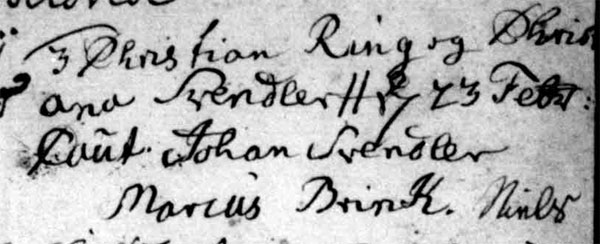 3 Christian Ring og Chris
ana Svendler 23 Febr:
Caut. Johan Svendler
Marcus Brink. Niels